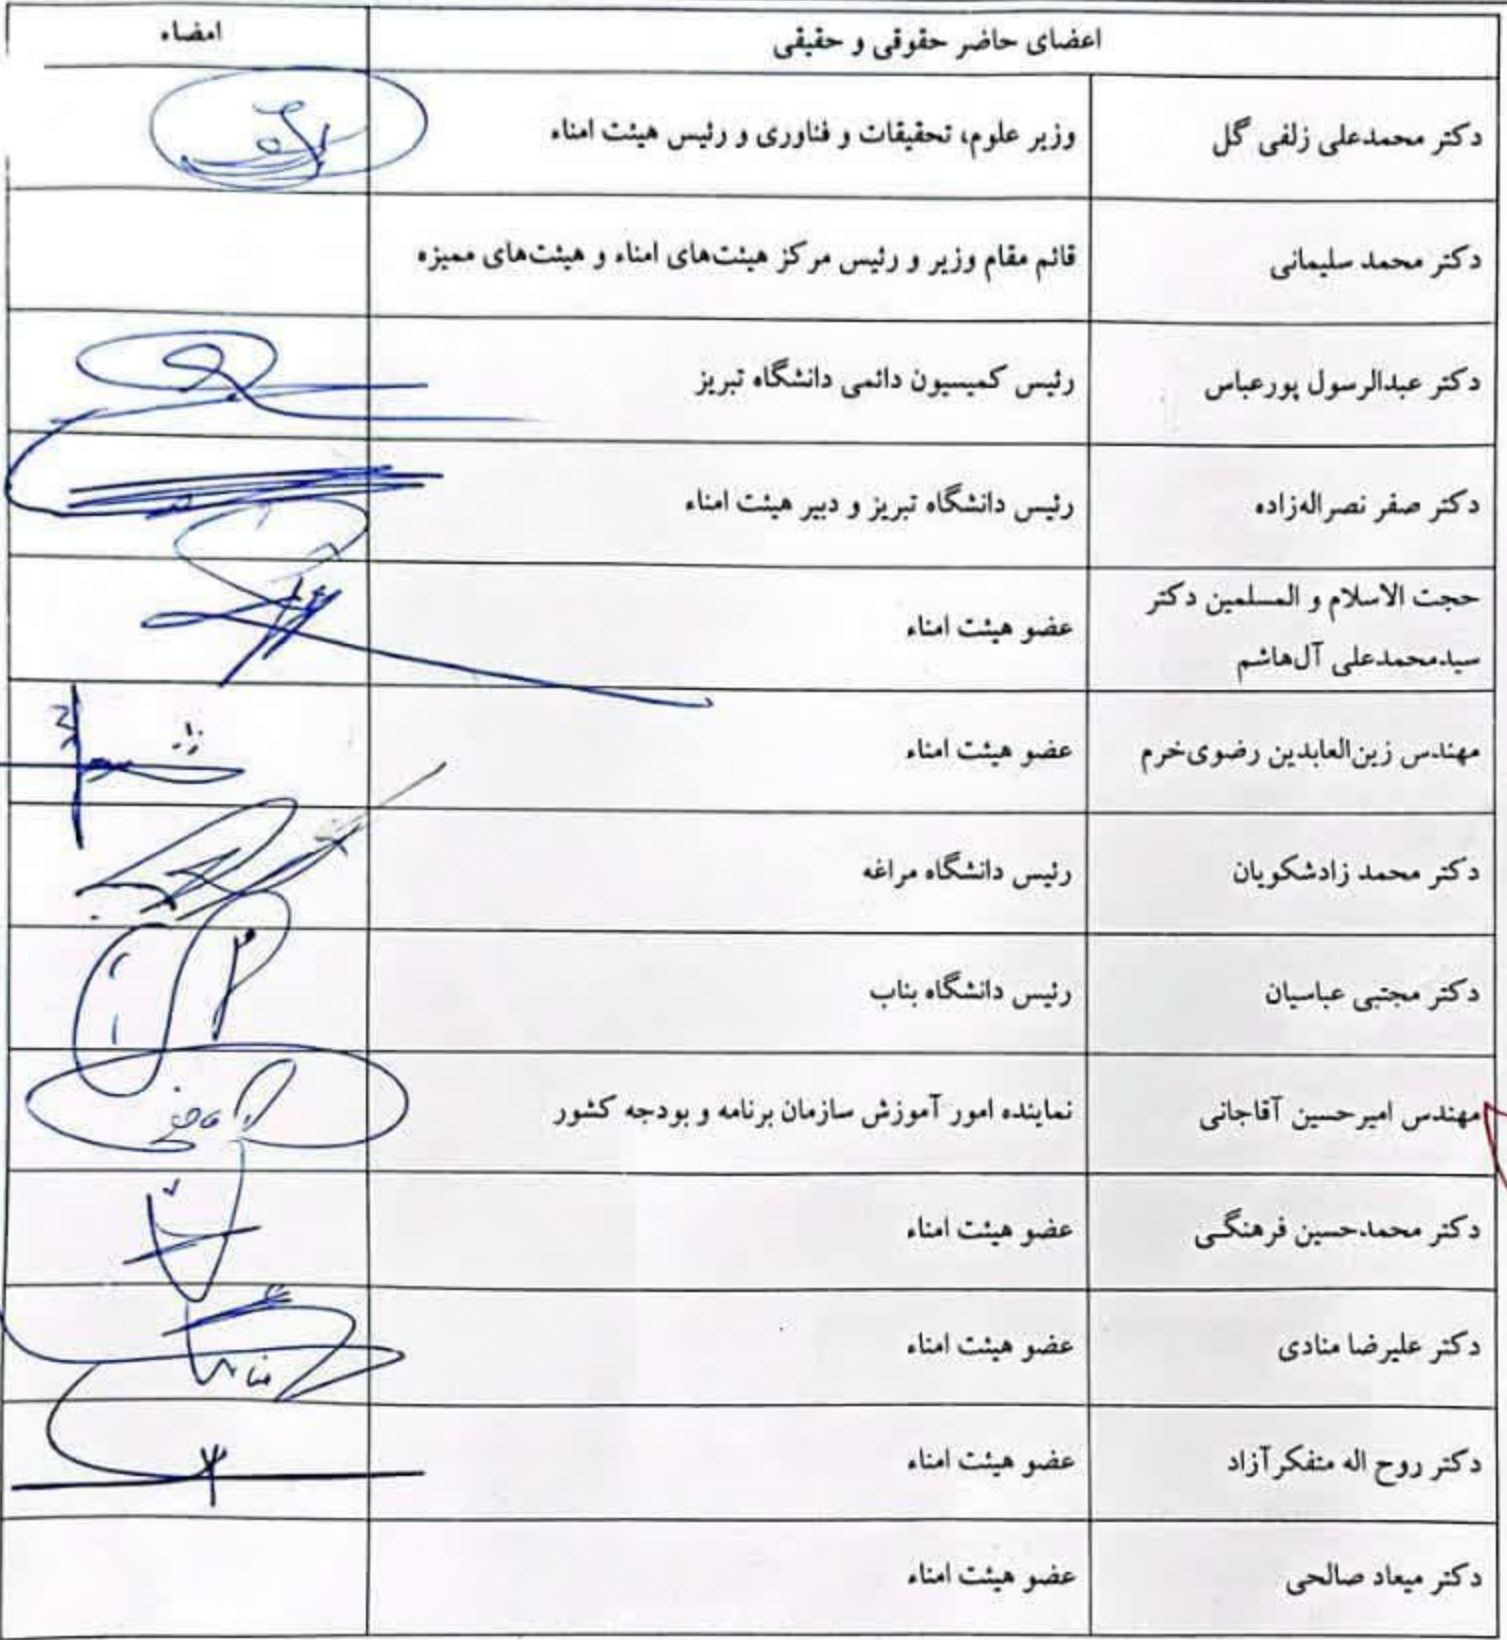 اعضای حاضر حقوقی و حقیقی امضاء
دکتر محمدعلی زلفی گل وزیر علوم، تحقیقات و فناوری و رئیس هیئت امناء
دکتر محمد سلیمانی قائم مقام وزیر و رئیس مرکز هیئت‌های امناء و هیئت‌های ممیزه
دکتر عبدالرسول پورعباس رئیس کمیسیون دائمی دانشگاه تبریز
دکتر صفر نصراله‌زاده رئیس دانشگاه تبریز و دبیر هیئت امناء
حجت الاسلام و المسلمین دکتر
سیدمحمدعلی آل‌هاشم عضو هیئت امناء
مهندس زین‌العابدین رضوی‌خرم عضو هیئت امناء
دکتر محمد زادشکویان رئیس دانشگاه مراغه
دکتر مجتبی عباسیان رئیس دانشگاه بناب
مهندس امیرحسین آقاجانی نماینده امور آموزش سازمان برنامه و بودجه کشور
دکتر محمدحسین فرهنگی عضو هیئت امناء
دکتر علیرضا منادی عضو هیئت امناء
دکتر روح اله متفکرآزاد عضو هیئت امناء
دکتر میعاد صالحی عضو هیئت امناء